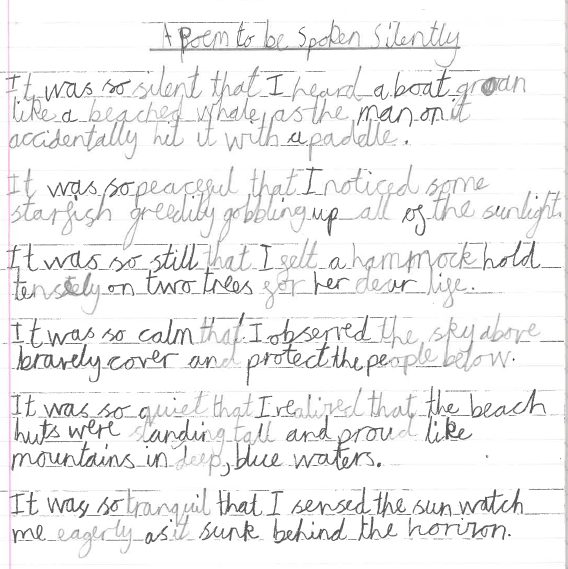 A Poem to be Spoken Silently
It was so silent that I heard a boat groan
like a beached whale, as the man on it
accidentally hit it with a paddle.
It was so peaceful that I noticed some
starfish greedily gobbling up all of the sunlight.
It was so still that I felt a hammock hold
tensely on two trees for her dear life.
It was so calm that I observed the sky above
bravely cover and protect the people below.
It was so quiet that I realized that the beach
huts were standing tall and proud like
mountains in deep, blue waters.
It was so tranquil that I sensed the sun watch
me eagerly as it sunk behind the horizon.